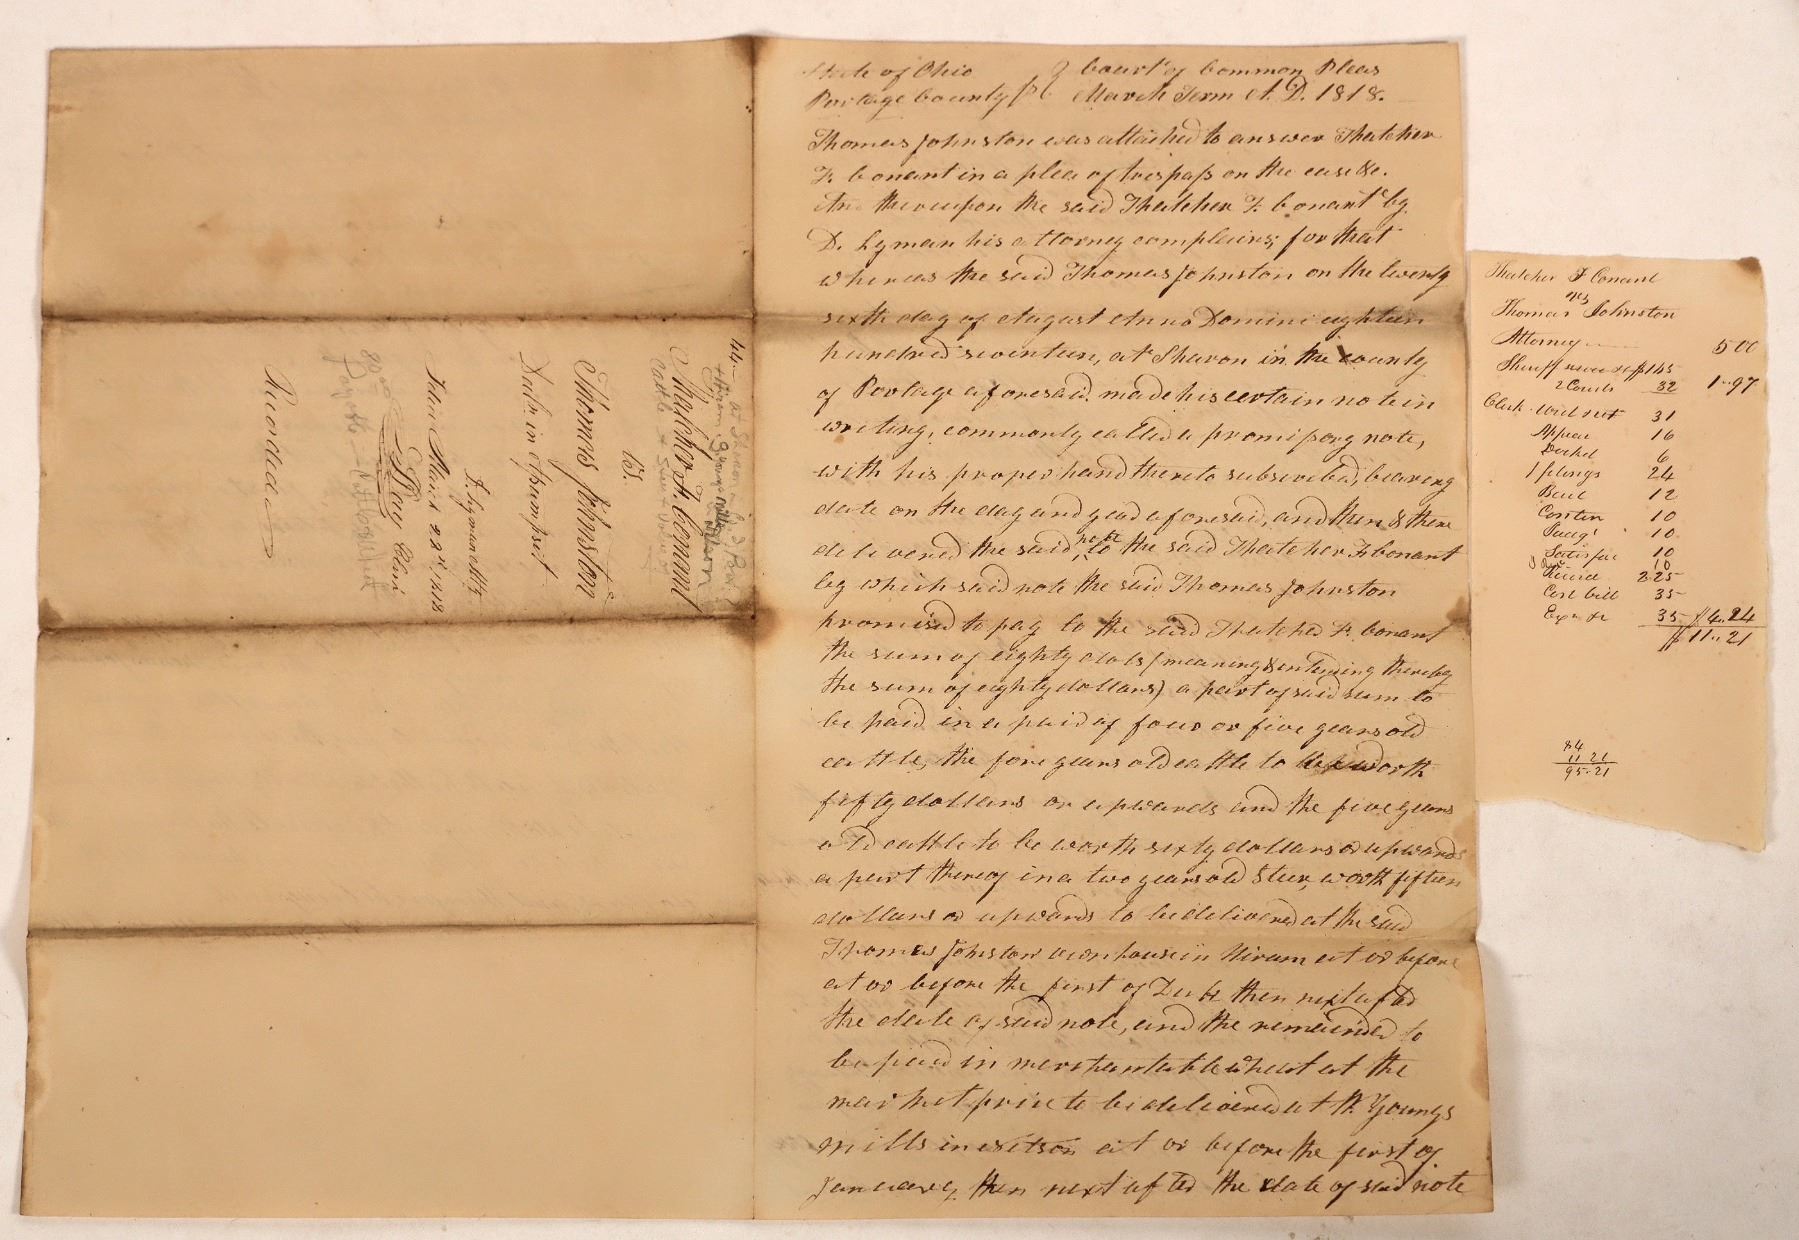 State of Ohio } Court of Common Pleas
Portage County ss } March Term A. D. 1818.
Thomas Johnston was attached to answer Thatcher
F. Conant in a plea of trespass on the case &c.
And thereupon the said Thatcher F. Conant by
D. Lyman his attorney complains; for that
whereas the said Thomas Johnston on the twenty
sixth day of August Anno Domini eighteen
hundred seventeen, at Sharon in the county
of Portage aforesaid, made his certain note in
writing, commonly called a promissory note,
with his proper hand thereto subscribed, bearing
date on the day and year aforesaid, and then & there
delivered the said note to the said Thatcher F. Conant
by which said note the said Thomas Johnston
promised to pay to the said Thatcher F. Conant
the sum of eighty dols (meaning & intending thereby
the sum of eighty dollars) a part of said sum to
be paid in a pair of four or five years old
cattle, the fore years old cattle to be worth
fifty dollars or upwards and the five years
old cattle to be worth sixty dollars or upwards
a part thereof in a two years old Steer, worth fifteen
dollars or upwards to be delivered at the said
Thomas Johnston own house in Hiram at or before
at or before the first of Decbr then next after
the date of said note, and the remainder to
be paid in merchantable wheat at the
market price to be delivered at the Youngs
mills in at or before the first of
January then next after the date of said note
44
Thatcher F. Conant
vs.
Thomas Johnston
Dalr in Assumpsit
D. Lyman atty.
Filed March 28th 1818
B Day Clerk
Recorded
Thatcher F Conant
vs
Thomas Johnston
Attorney 5 00
Sheriff $1 45
2 Courts 32 1..97
Clerk 31
Appear 16
Docket 6
1 plengs 24
12
Contin 10
10
Satisfac 10
10
Record 2 25
Cost bill 35
35 $4.24
$11..21
84
11 21
95.21